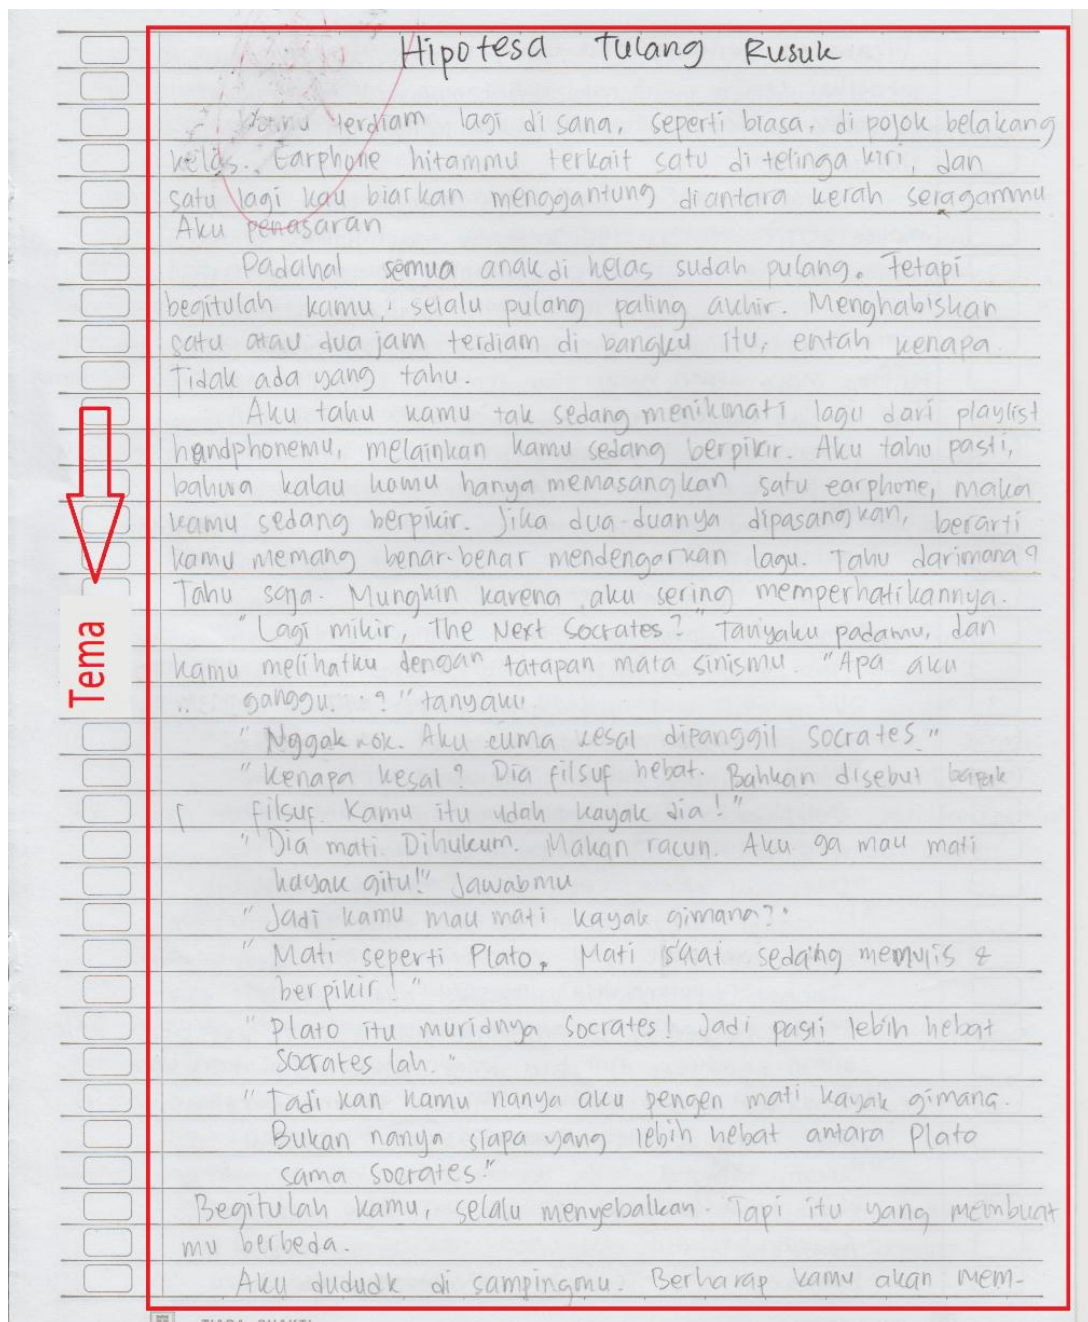 Hipotesa Tulang Rusuk
Kamu terdiam lagi di sana, seperti biasa, di pojok belakang
kelas. Earphone hitammu terkait satu di telinga kiri, dan
satu lagi kau biarkan menggantung diantara kerah seragammu
Aku penasaran
Padahal semua anak di kelas sudah pulang. Tetapi
begitulah kamu, selalu pulang paling akhir. Menghabiskan
satu atau dua jam terdiam di bangku itu, entah kenapa.
Tidak ada yang tahu.
Aku tahu kamu tak sedang menikmati lagu dari playlist
handphonemu, melainkan kamu sedang berpikir. Aku tahu pasti,
bahwa kalau kamu hanya memasangkan satu earphone, maka
kamu sedang berpikir. Jika dua-duanya dipasangkan, berarti
kamu memang benar-benar mendengarkan lagu. Tahu darimana?
Tahu saja. Mungkin karena aku sering memperhatikannya.
"Lagi mikir, The Next Socrates?" Tanyaku padamu, dan
kamu melihatku dengan tatapan mata sinismu. "Apa aku
ganggu..?" tanyaku
"Nggak kok. Aku cuma kesal dipanggil Socrates."
"Kenapa kesal? Dia filsuf hebat. Bahkan disebut bapak
filsuf. Kamu itu udah kayak dia!"
"Dia mati. Dihukum. Makan racun. Aku ga mau mati
kayak gitu!" Jawabmu
"Jadi kamu mau mati kayak gimana?"
"Mati seperti Plato. Mati saat sedang menulis &
berpikir!"
"Plato itu muridnya Socrates! Jadi pasti lebih hebat
Socrates lah."
"Tadi kan kamu nanya aku pengen mati kayak gimana.
Bukan nanya siapa yang lebih hebat antara Plato
sama Socrates."
Begitulah kamu, selalu menyebalkan. Tapi itu yang membuat
mu berbeda.
Aku dududk di sampingmu. Berharap kamu akan mem-
Tema